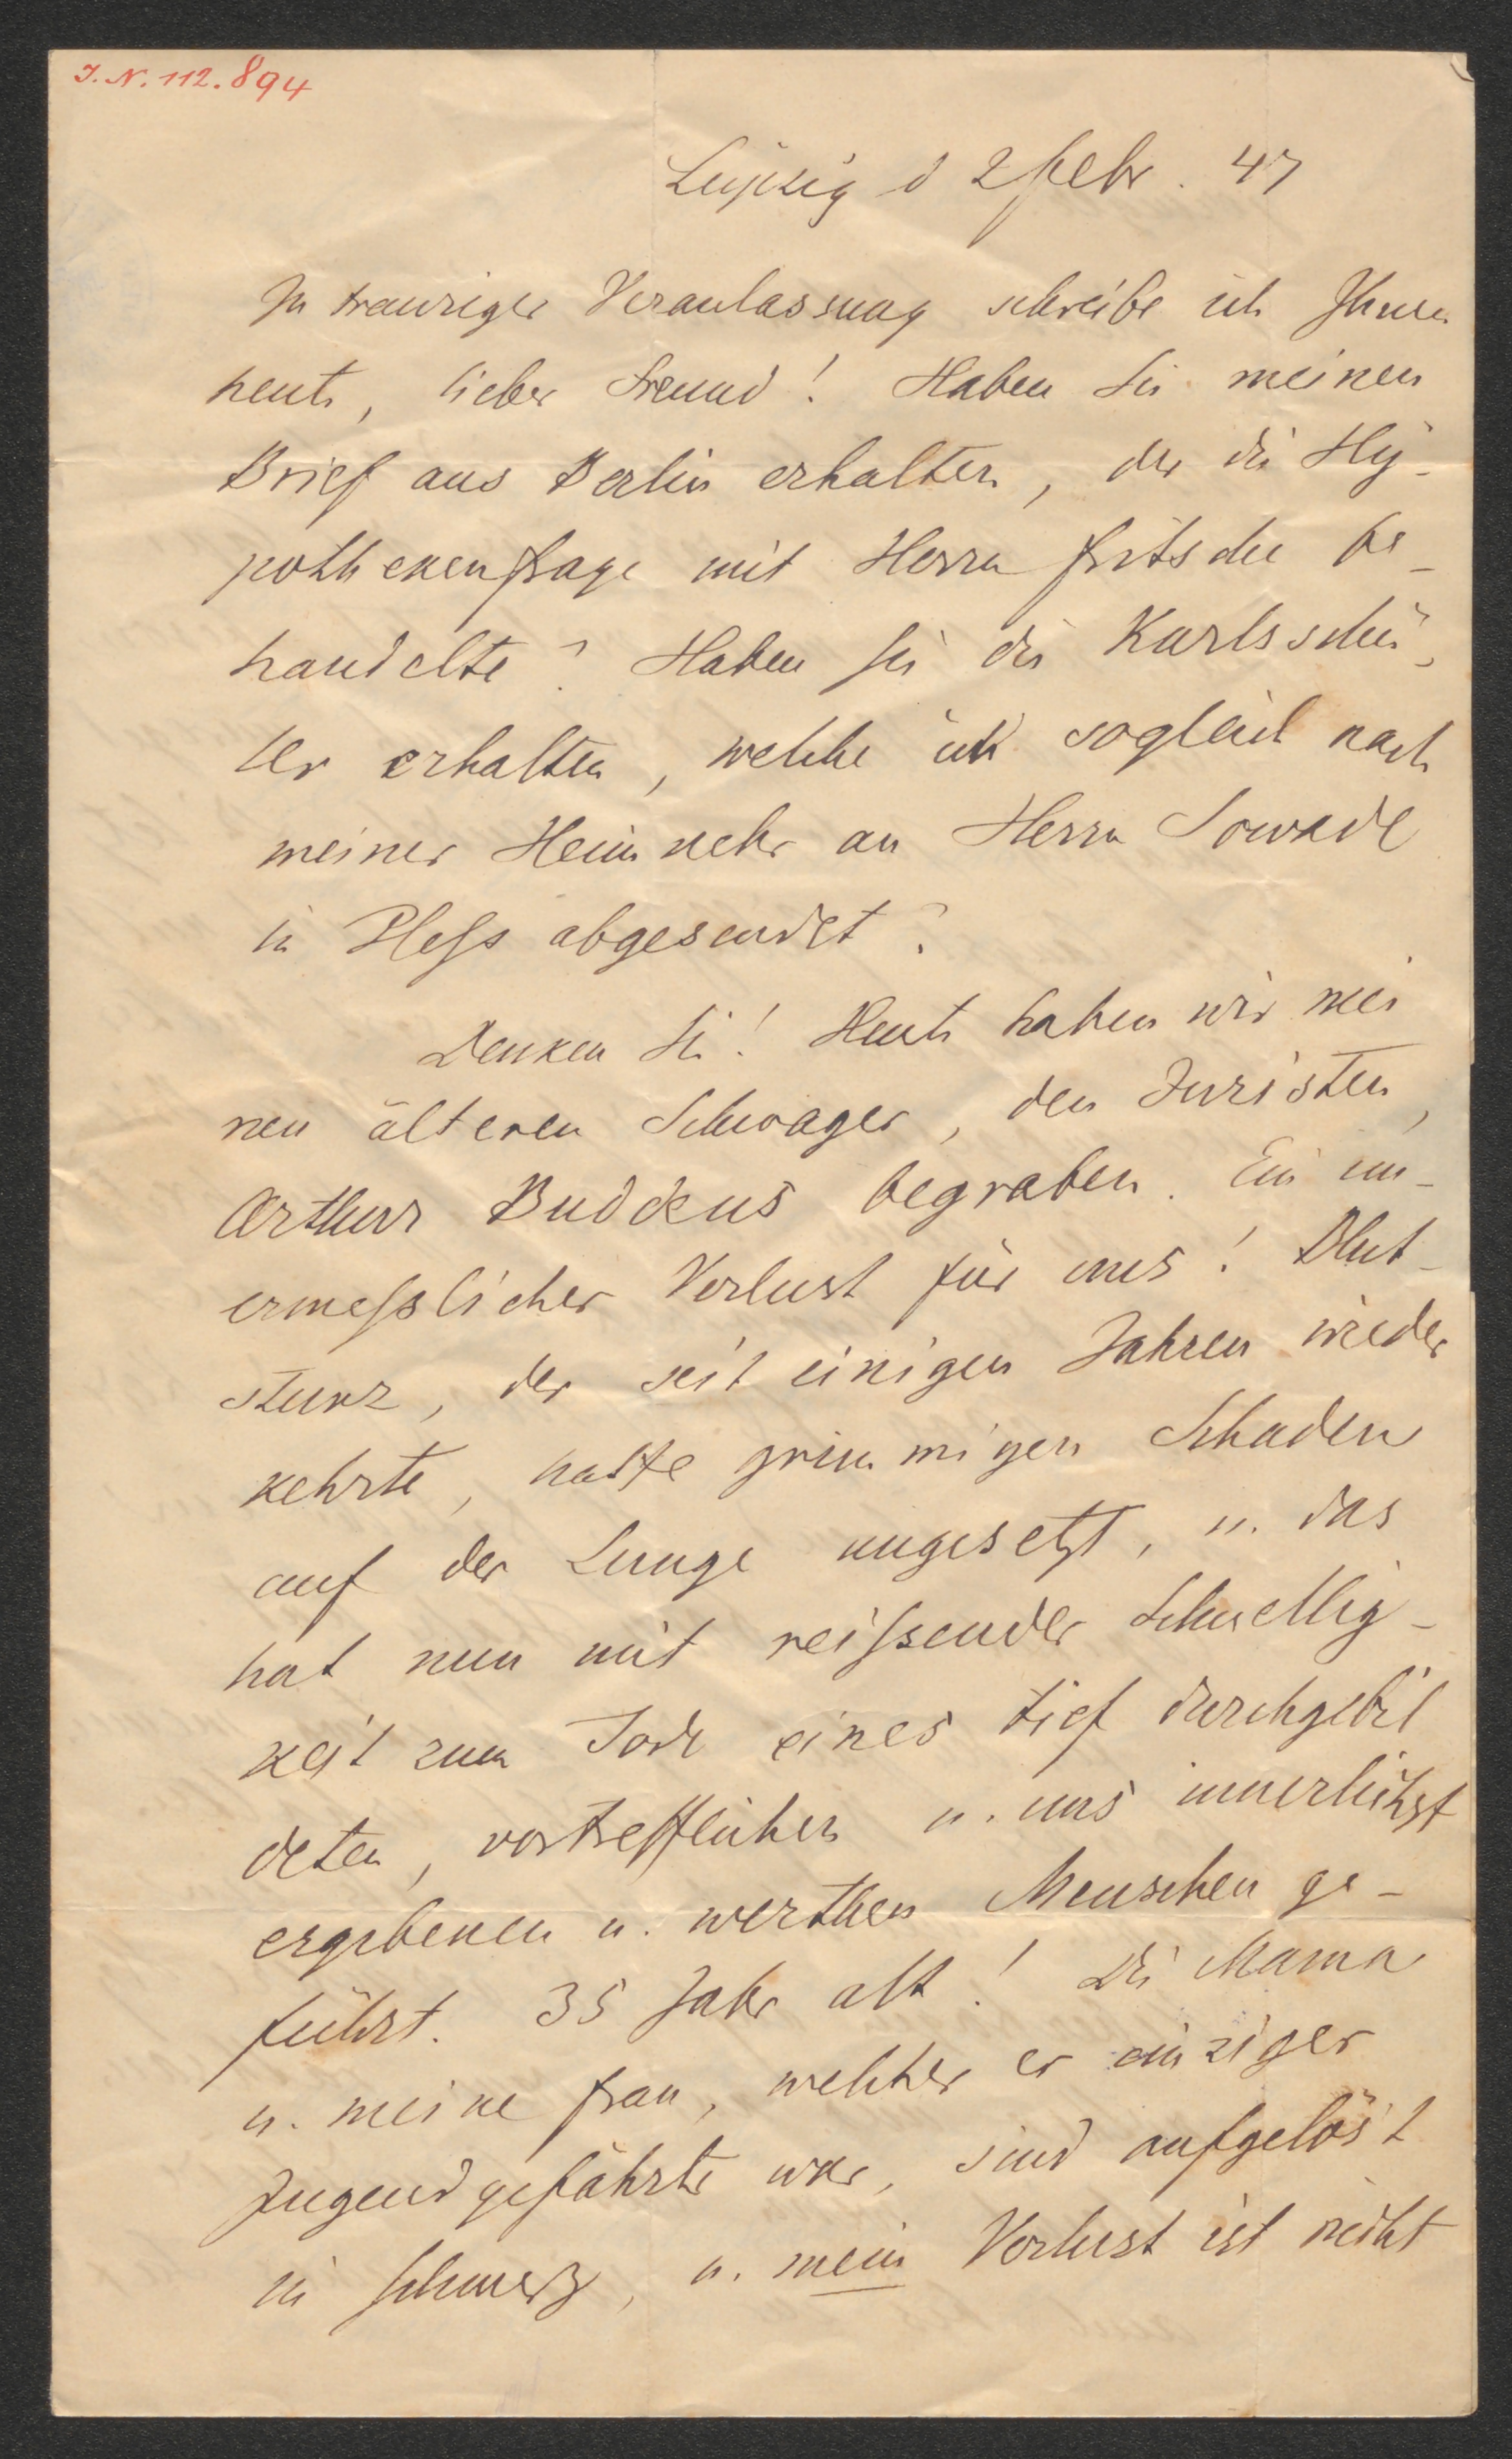 J. N. 112.894
Leipzig d 2 Febr. 47
In trauriger Veranlassung schreibe ich Ihnen
heute, lieber Freund! Haben Sie meinen
Brief aus Berlin erhalten, der die Hy-
pothekenfrage mit Herrn Fritsche be-
handelte? Haben Sie die Karlsschü-
ler erhalten, welche ich sogleich nach
meiner Heimkehr an Herrn Sowade
in Pless abgesendet?
Denken Sie! Heute haben wir mei
nen älteren Schwager, den Juristen,
Arthur Buddeus begraben. Ein un-
ermesslicher Verlust für uns! Blut-
sturz, der seit einigen Jahren wieder
kehrte, hatte grimmigen Schaden
auf der Lunge angesetzt, u. das
hat nun mit reissender Schnellig-
keit zum Tode eines tief durchgebil
deten, vortrefflichen u. uns innerlichst
ergebenen u. werthen Menschen ge-
führt. 35 Jahr alt! Die Mama
u. meine Frau, welcher er einziger
Jugendgefährte war, sind aufgelöst
in Schmerz, u. mein Verlust ist nicht